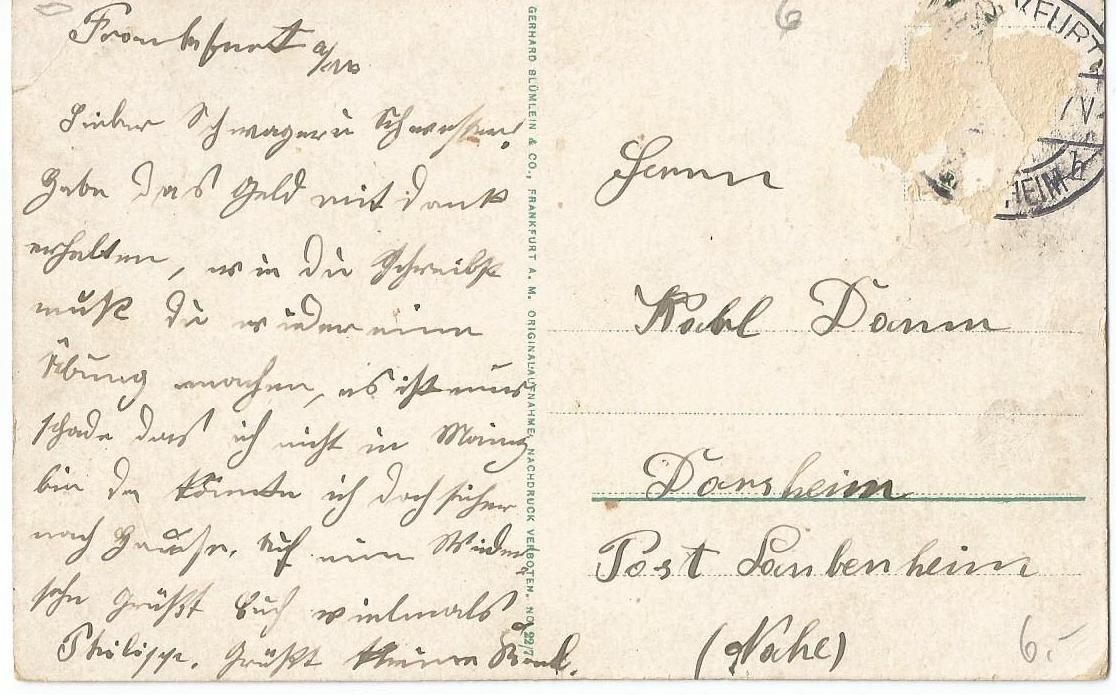 Frankfurt a/M
Lieber Schwager u Schwester!
Habe das Geld mit dank
erhalten, wie du Schreibst
mußt du wieder eine
Übung machen, es ist nur
schade das ich nicht in Mainz
bin da könnte ich doch sicher
nach Hause. Auf ein Wieder
sehn Grüßt Euch vielmals
Philipp. Grüßt kleinen Karl.
GERHARD BLÜMLEIN & CO., FRANKFURT A. M. ORIGINALAUFNAHME, NACHDRUCK VERBOTEN. NO 22/7
6
KFURT
HEIM
Herrn
Karl Damm
Dorsheim
Post Laubenheim
(Nahe)
6.-